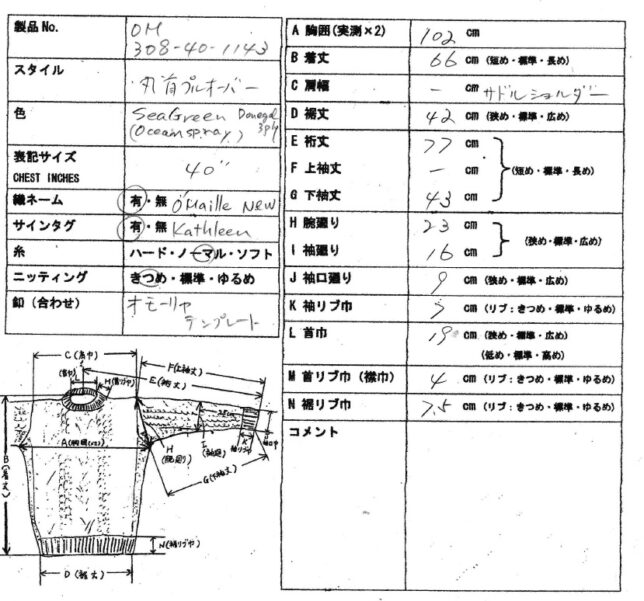 製品No.
OM
308-40-1143
スタイル
丸首プルオーバー
色
SeaGreen Donegal
(Oceanspray) 3ply
表記サイズ
CHEST INCHES
40"
織ネーム
有・無 O'Maille New
サインタグ
有・無 Kathleen
糸
ハード・ノーマル・ソフト
ニッティング
きつめ・標準・ゆるめ
釦（合わせ）
オモーリャ
テンプレート
A 胸囲(実測×2) 102 cm
B 着丈 66 cm (短め・標準・長め)
C 肩幅 - cm サドルショルダー
D 裾丈 42 cm (狭め・標準・広め)
E 裄丈 77 cm
F 上袖丈 - cm (短め・標準・長め)
G 下袖丈 43 cm
H 腕廻り 23 cm
(狭め・標準・広め)
I 袖廻り 16 cm
J 袖口廻り 9 cm (狭め・標準・広め)
K 袖リブ巾 5 cm (リブ：きつめ・標準・ゆるめ)
L 首巾 19 cm (狭め・標準・広め)
(低め・標準・高め)
M 首リブ巾（襟巾） 4 cm (リブ：きつめ・標準・ゆるめ)
N 裾リブ巾 7.5 cm (リブ：きつめ・標準・ゆるめ)
コメント
C(肩巾)
F(上袖丈)
E(裄丈)
L
(首巾)
H(首リブ巾)
A(胸囲(×2))
B(着丈)
H
(腕廻り)
I
(袖廻)
K
袖リブ巾
G(下袖丈)
N(裾リブ巾)
D(裾丈)